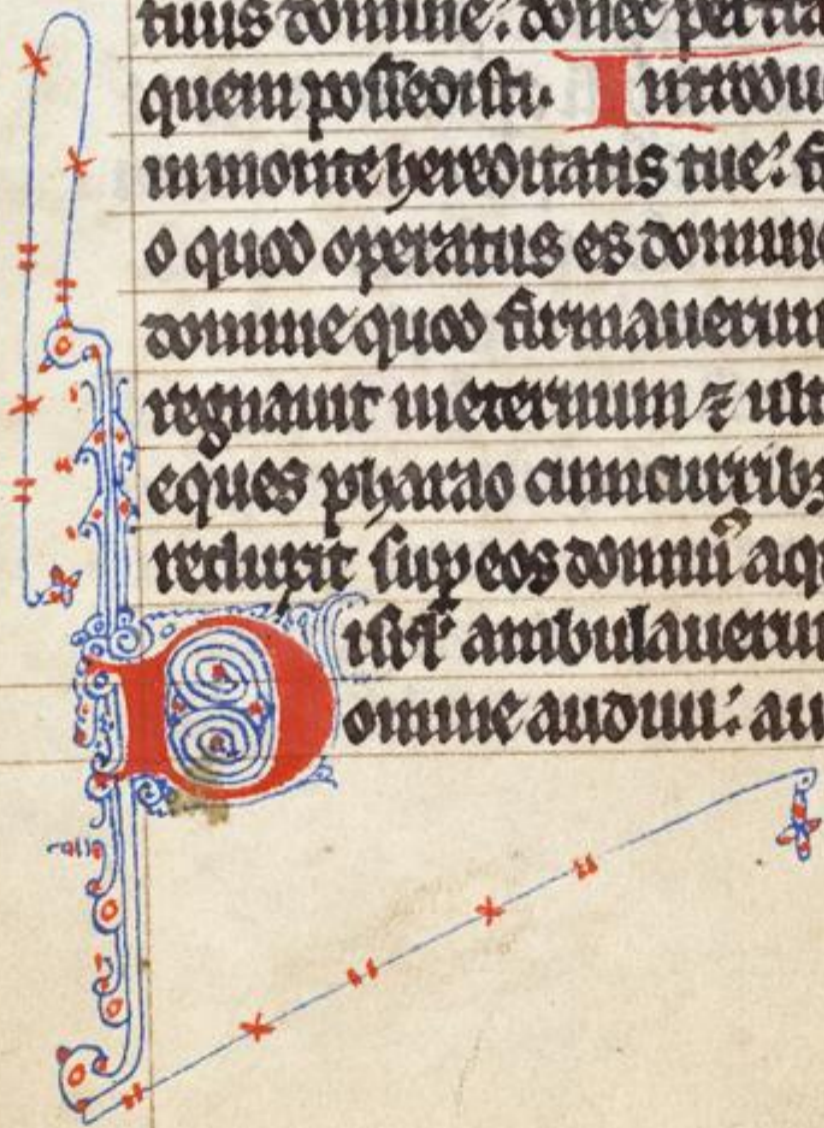 tuus domine: donec pertra
quem possedisti. Introdu
in monte hereditatis tue: fi
o quod operatus es domine
domine quod firmauerun
regnauit ineternum ⁊ ult
eques pharao cumcurribꝫ
reduxit suꝑ eos dominꝰ aqu
isr̃l ambulauerun
Domine audiui: au